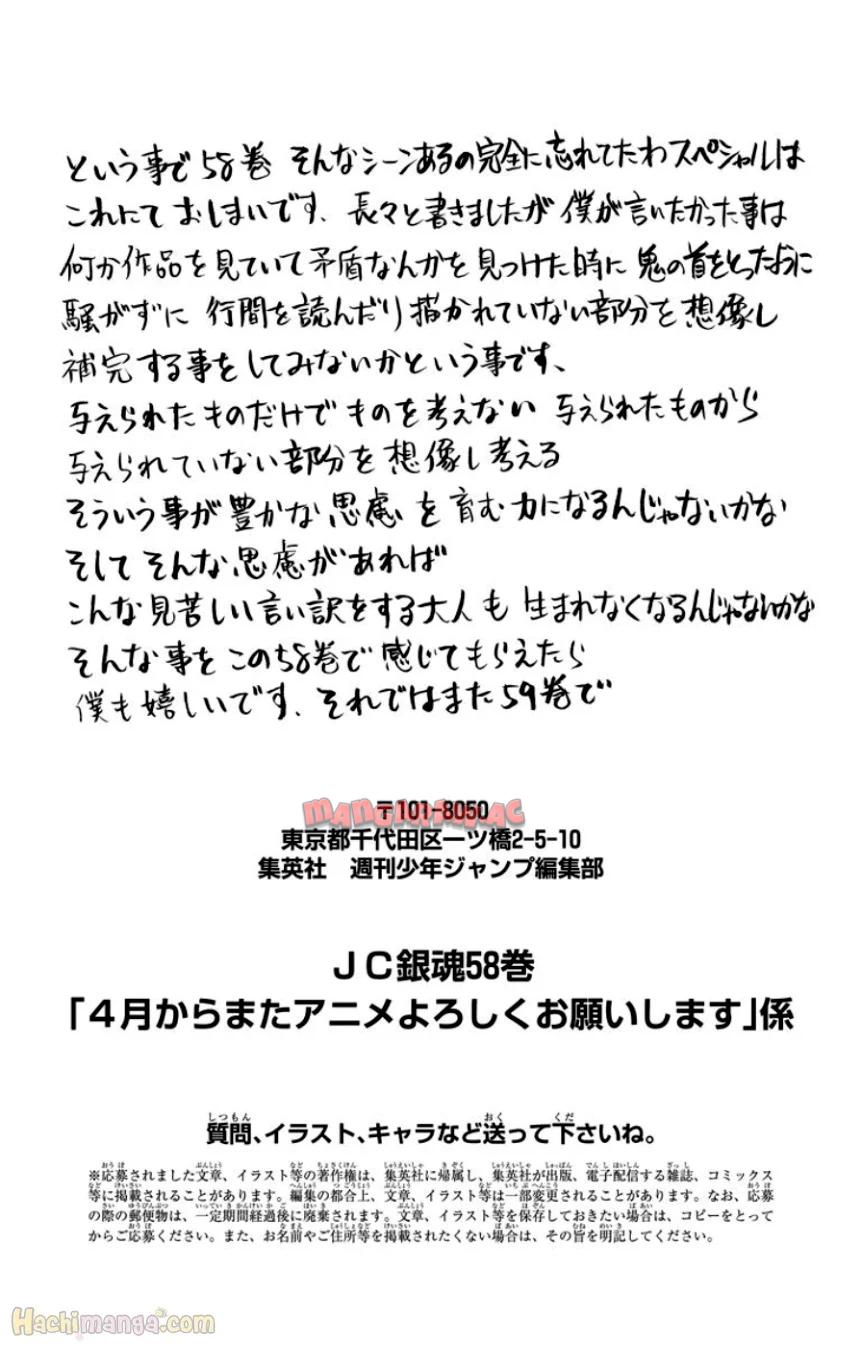 という事で58巻 そんなシーンあるの完全に忘れてたわスペシャルは
これにて おしまいです、長々と書きましたが 僕が言いたかった事は
何か作品を見ていて矛盾なんかを見つけた時に 鬼の首をとったように
騒がずに 行間を読んだり描かれていない部分を想像し
補完する事をしてみないかという事です、
与えられたものだけでものを考えない 与えられたものから
与えられていない部分を想像し考える
そういう事が豊かな思慮を育む力になるんじゃないかな
そしてそんな思慮があれば
こんな見苦しい言い訳をする大人も 生まれなくなるんじゃないかな
そんな事をこの58巻で感じてもらえたら
僕も嬉しいです、それではまた59巻で
〒101-8050
東京都千代田区一ツ橋2-5-10
集英社 週刊少年ジャンプ編集部
JC銀魂58巻
「4月からまたアニメよろしくお願いします」係
質問、イラスト、キャラなど送って下さいね。
※応募されました文章、イラスト等の著作権は、集英社に帰属し、集英社が出版、電子配信する雑誌、コミックス
等に掲載されることがあります。編集の都合上、文章、イラスト等は一部変更されることがあります。なお、応募
の際の郵便物は、一定期間経過後に廃棄されます。文章、イラスト等を保存しておきたい場合は、コピーをとって
からご応募ください。また、お名前やご住所等を掲載されたくない場合は、その旨を明記してください。
Hachimanga.com